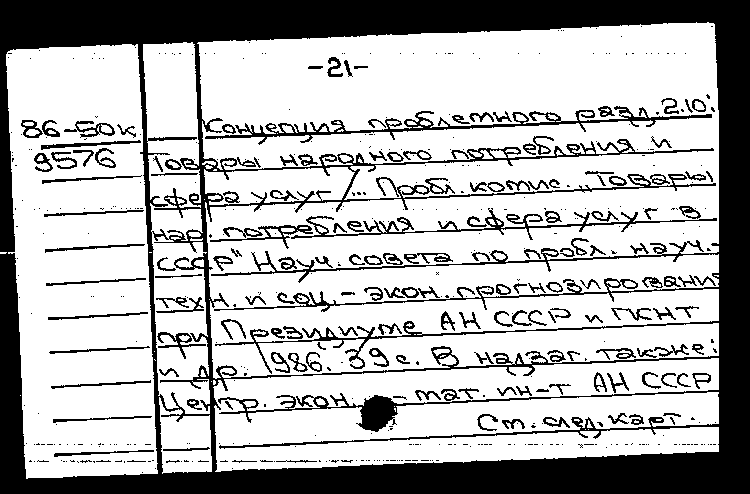 -21-
86-50к Концепция проблемного разд. 2.10:
9576 Товары народного потребления и
сфера услуг /... Пробл. комис. „Товары
нар. потребления и сфера услуг в
СССР" Науч. совета по пробл. науч.-
техн. и соц.-экон. прогнозирования
при Президиуме АН СССР и ГКНТ
и др. 1986. 39 с. В надзаг. также:
Центр. экон.-мат. ин-т АН СССР
См. след. карт.